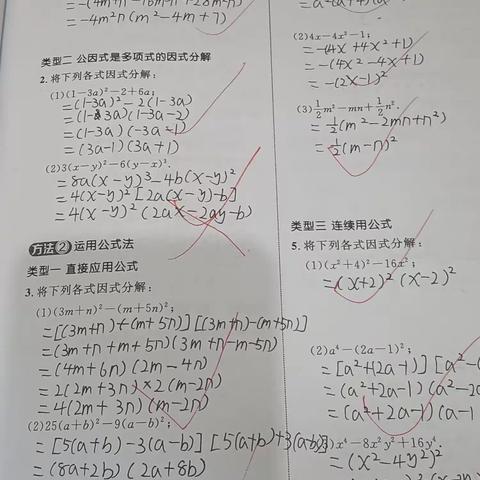 = -4m²n(m²-4m+7)
类型二 公因式是多项式的因式分解
2. 将下列各式因式分解：
(1)(1-3a)²-2+6a;
=(1-3a)²-2(1-3a)
=(1-3a)(1-3a-2)
=(1-3a)(-3a-1)
=(3a-1)(3a+1)
(2)3(x-y)²-6(y-x)².
=8a(x-y)³-4b(x-y)²
=4(x-y)²[2a(x-y)-b]
=4(x-y)²(2ax-2ay-b)
方法② 运用公式法
类型一 直接应用公式
3. 将下列各式因式分解：
(1)(3m+n)²-(m+5n)²;
=[(3m+n)+(m+5n)][(3m+n)-(m+5n)]
=(3m+n+m+5n)(3m+n-m-5n)
=(4m+6n)(2m-4n)
=2(2m+3n)×2(m-2n)
=4(2m+3n)(m-2n)
(2)25(a+b)²-9(a-b)²;
=[5(a+b)-3(a-b)][5(a+b)+3(a-b)]
=(8a+2b)(2a+8b)
(2)4x-4x²-1;
=-(4x+4x²+1)
=-(4x²-4x+1)
=-(2x-1)²
(3)½m²-mn+½n².
=½(m²-2mn+n²)
=½(m-n)²
类型三 连续用公式
5. 将下列各式因式分解：
(1)(x²+4)²-16x²;
=(x+2)²(x-2)²
(2)a⁴-(2a-1)²;
=[a²+(2a-1)][a²-(
=(a²+2a-1)(a²-2a
=(a²+2a-1)(a-1
(3)x⁴-8x²y²+16y⁴.
=(x²-4y²)²